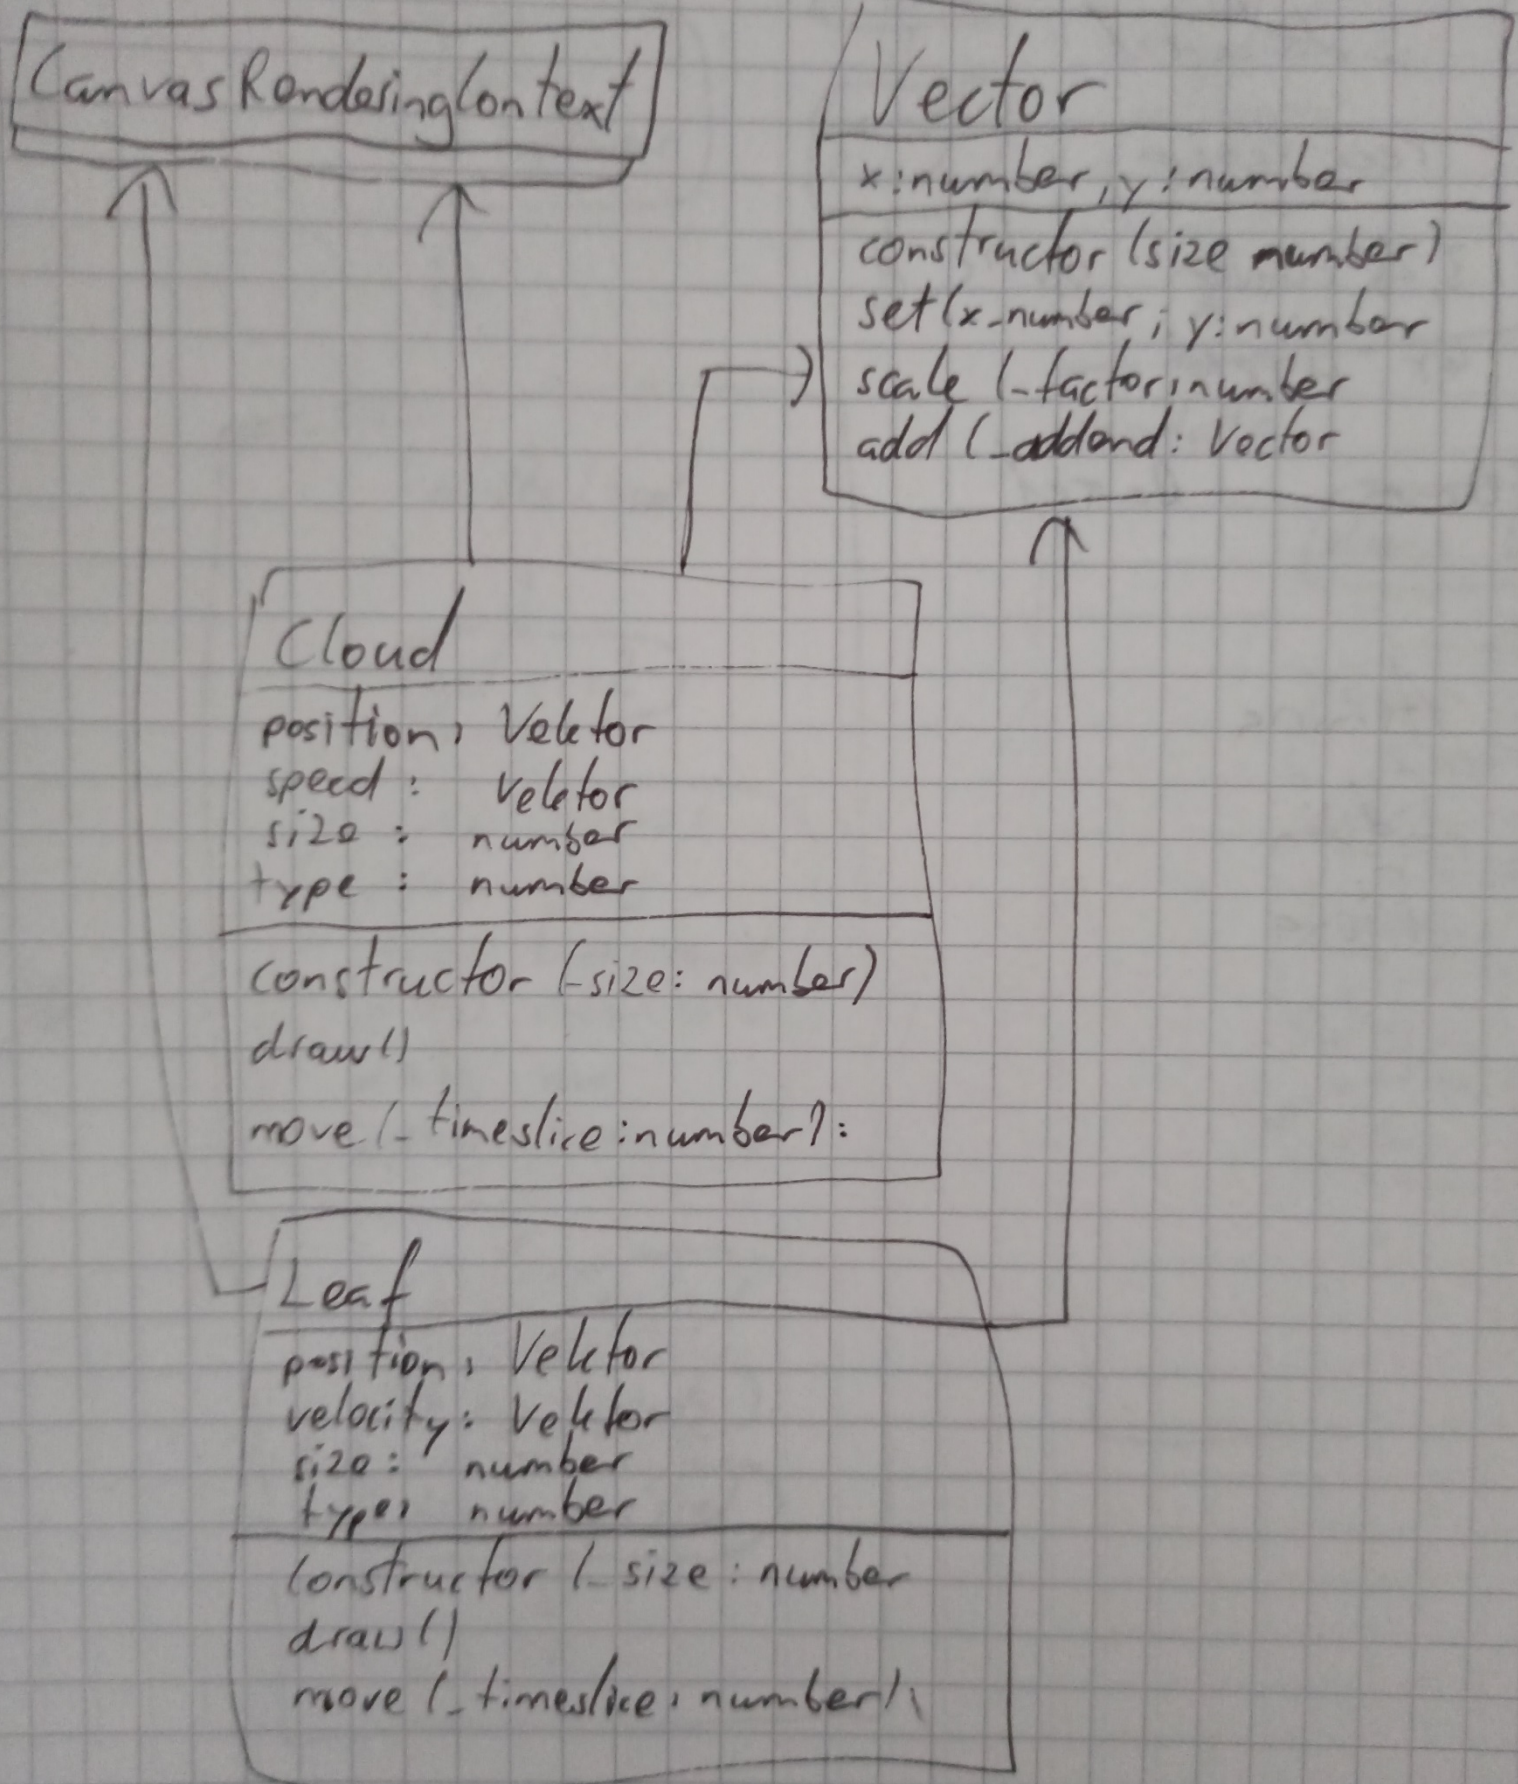 CanvasRenderingContext
Vector
x:number, y:number
constructor (size number)
set(x-number, y:number
scale (_factor:number
add (_addend: Vector
Cloud
position: Vektor
speed: Vektor
size: number
type: number
constructor (_size: number)
draw()
move (_timeslice:number):
Leaf
position: Vektor
velocity: Vektor
size: number
type: number
constructor (_size: number
draw()
move (_timeslice: number):